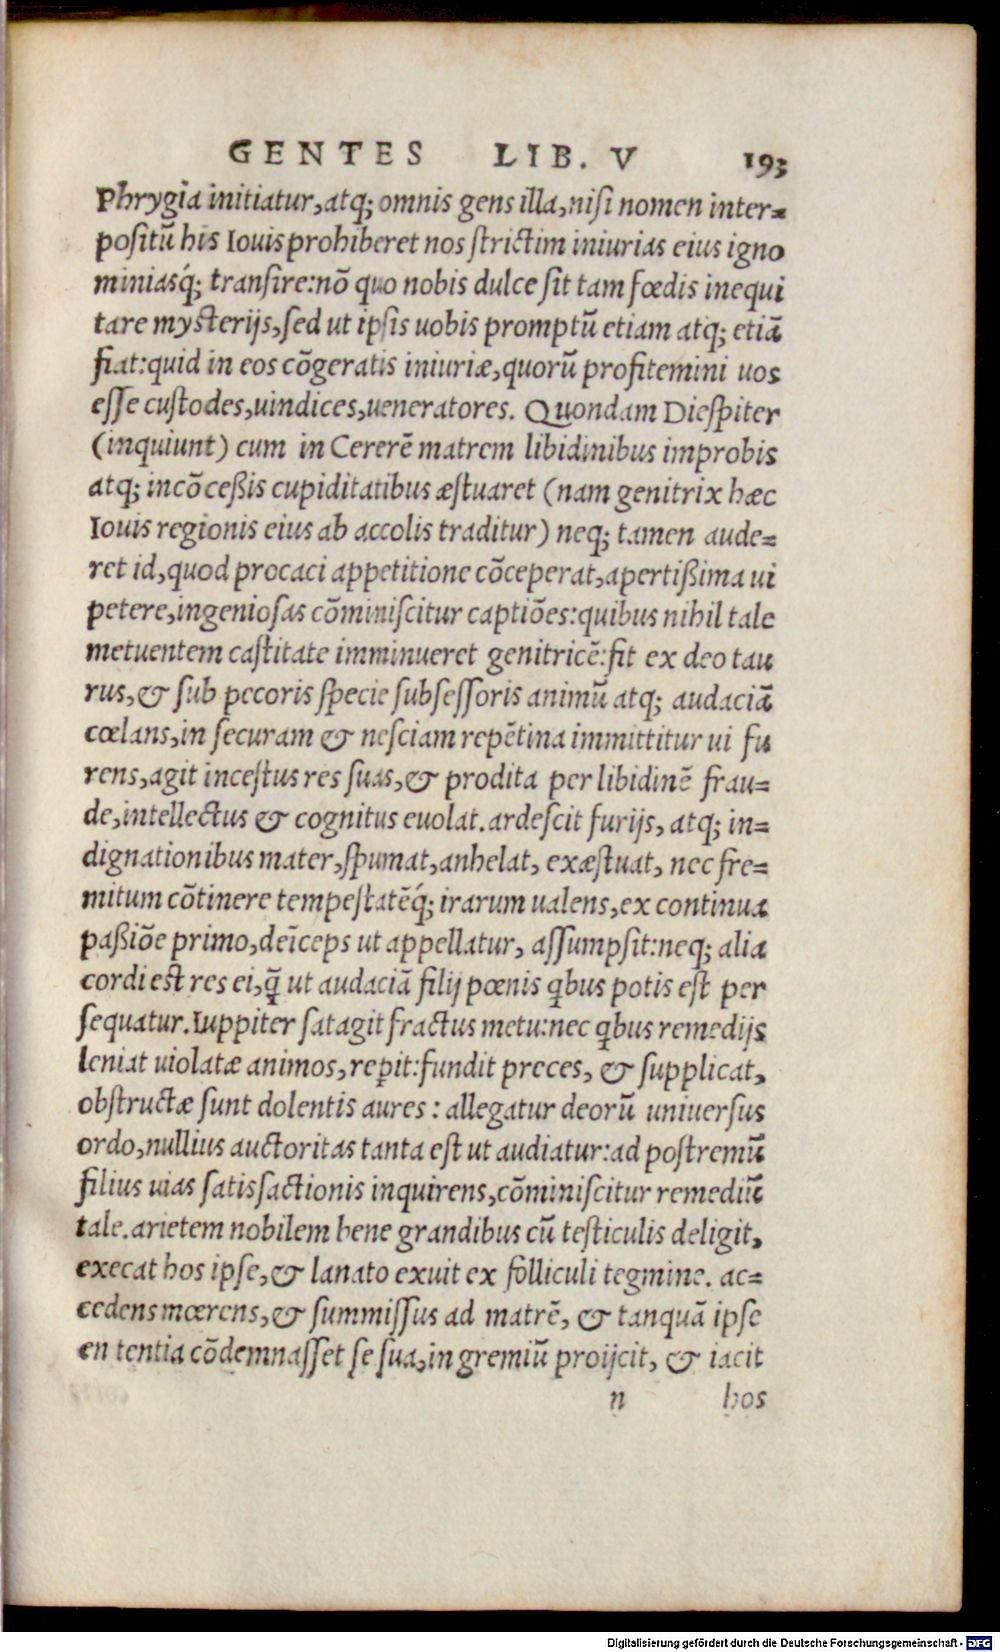 GENTES LIB. V 193
Phrygia initiatur, atq; omnis gens illa, nisi nomen inter-
positũ his Iouis prohiberet nos strictim iniurias eius igno
miniasq́; transire: nõ quo nobis dulce sit tam fœdis inequi
tare mysterijs, sed ut ipsis uobis promptũ etiam atq; etiã
fiat: quid in eos cõgeratis iniuriæ, quorũ profitemini uos
esse custodes, uindices, ueneratores. Quondam Diespiter
(inquiunt) cum in Cererẽ matrem libidinibus improbis
atq; incõcessis cupiditatibus æstuaret (nam genitrix hæc
Iouis regionis eius ab accolis traditur) neq; tamen aude-
ret id, quod procaci appetitione cõceperat, apertissima ui
petere, ingeniosas cõminiscitur captiões: quibus nihil tale
metuentem castitate imminueret genitricẽ: fit ex deo tau
rus, & sub pecoris specie subsessoris animũ atq; audaciã
cœlans, in securam & nesciam repẽtina immittitur ui fu
rens, agit incestus res suas, & prodita per libidinẽ frau-
de, intellectus & cognitus euolat. ardescit furijs, atq; in-
dignationibus mater, spumat, anhelat, exæstuat, nec fre-
mitum cõtinere tempestatẽq́; irarum ualens, ex continua
passiõe primo, deĩceps ut appellatur, assumpsit: neq; alia
cordi est res ei, q̃ ut audaciã filij pœnis qbus potis est per
sequatur. Iuppiter satagit fractus metu: nec qbus remedijs
leniat uiolatæ animos, reꝑit: fundit preces, & supplicat,
obstructæ sunt dolentis aures: allegatur deorũ uniuersus
ordo, nullius auctoritas tanta est ut audiatur: ad postremũ
filius uias satissactionis inquirens, cõminiscitur remediũ
tale. arietem nobilem bene grandibus cũ testiculis deligit,
execat hos ipse, & lanato exuit ex folliculi tegmine. ac-
cedens mœrens, & summissus ad matrẽ, & tanquã ipse
en tentia cõdemnasset se sua, in gremiũ proijcit, & iacit
n hos
Digitalisierung gefördert durch die Deutsche Forschungsgemeinschaft - DFG